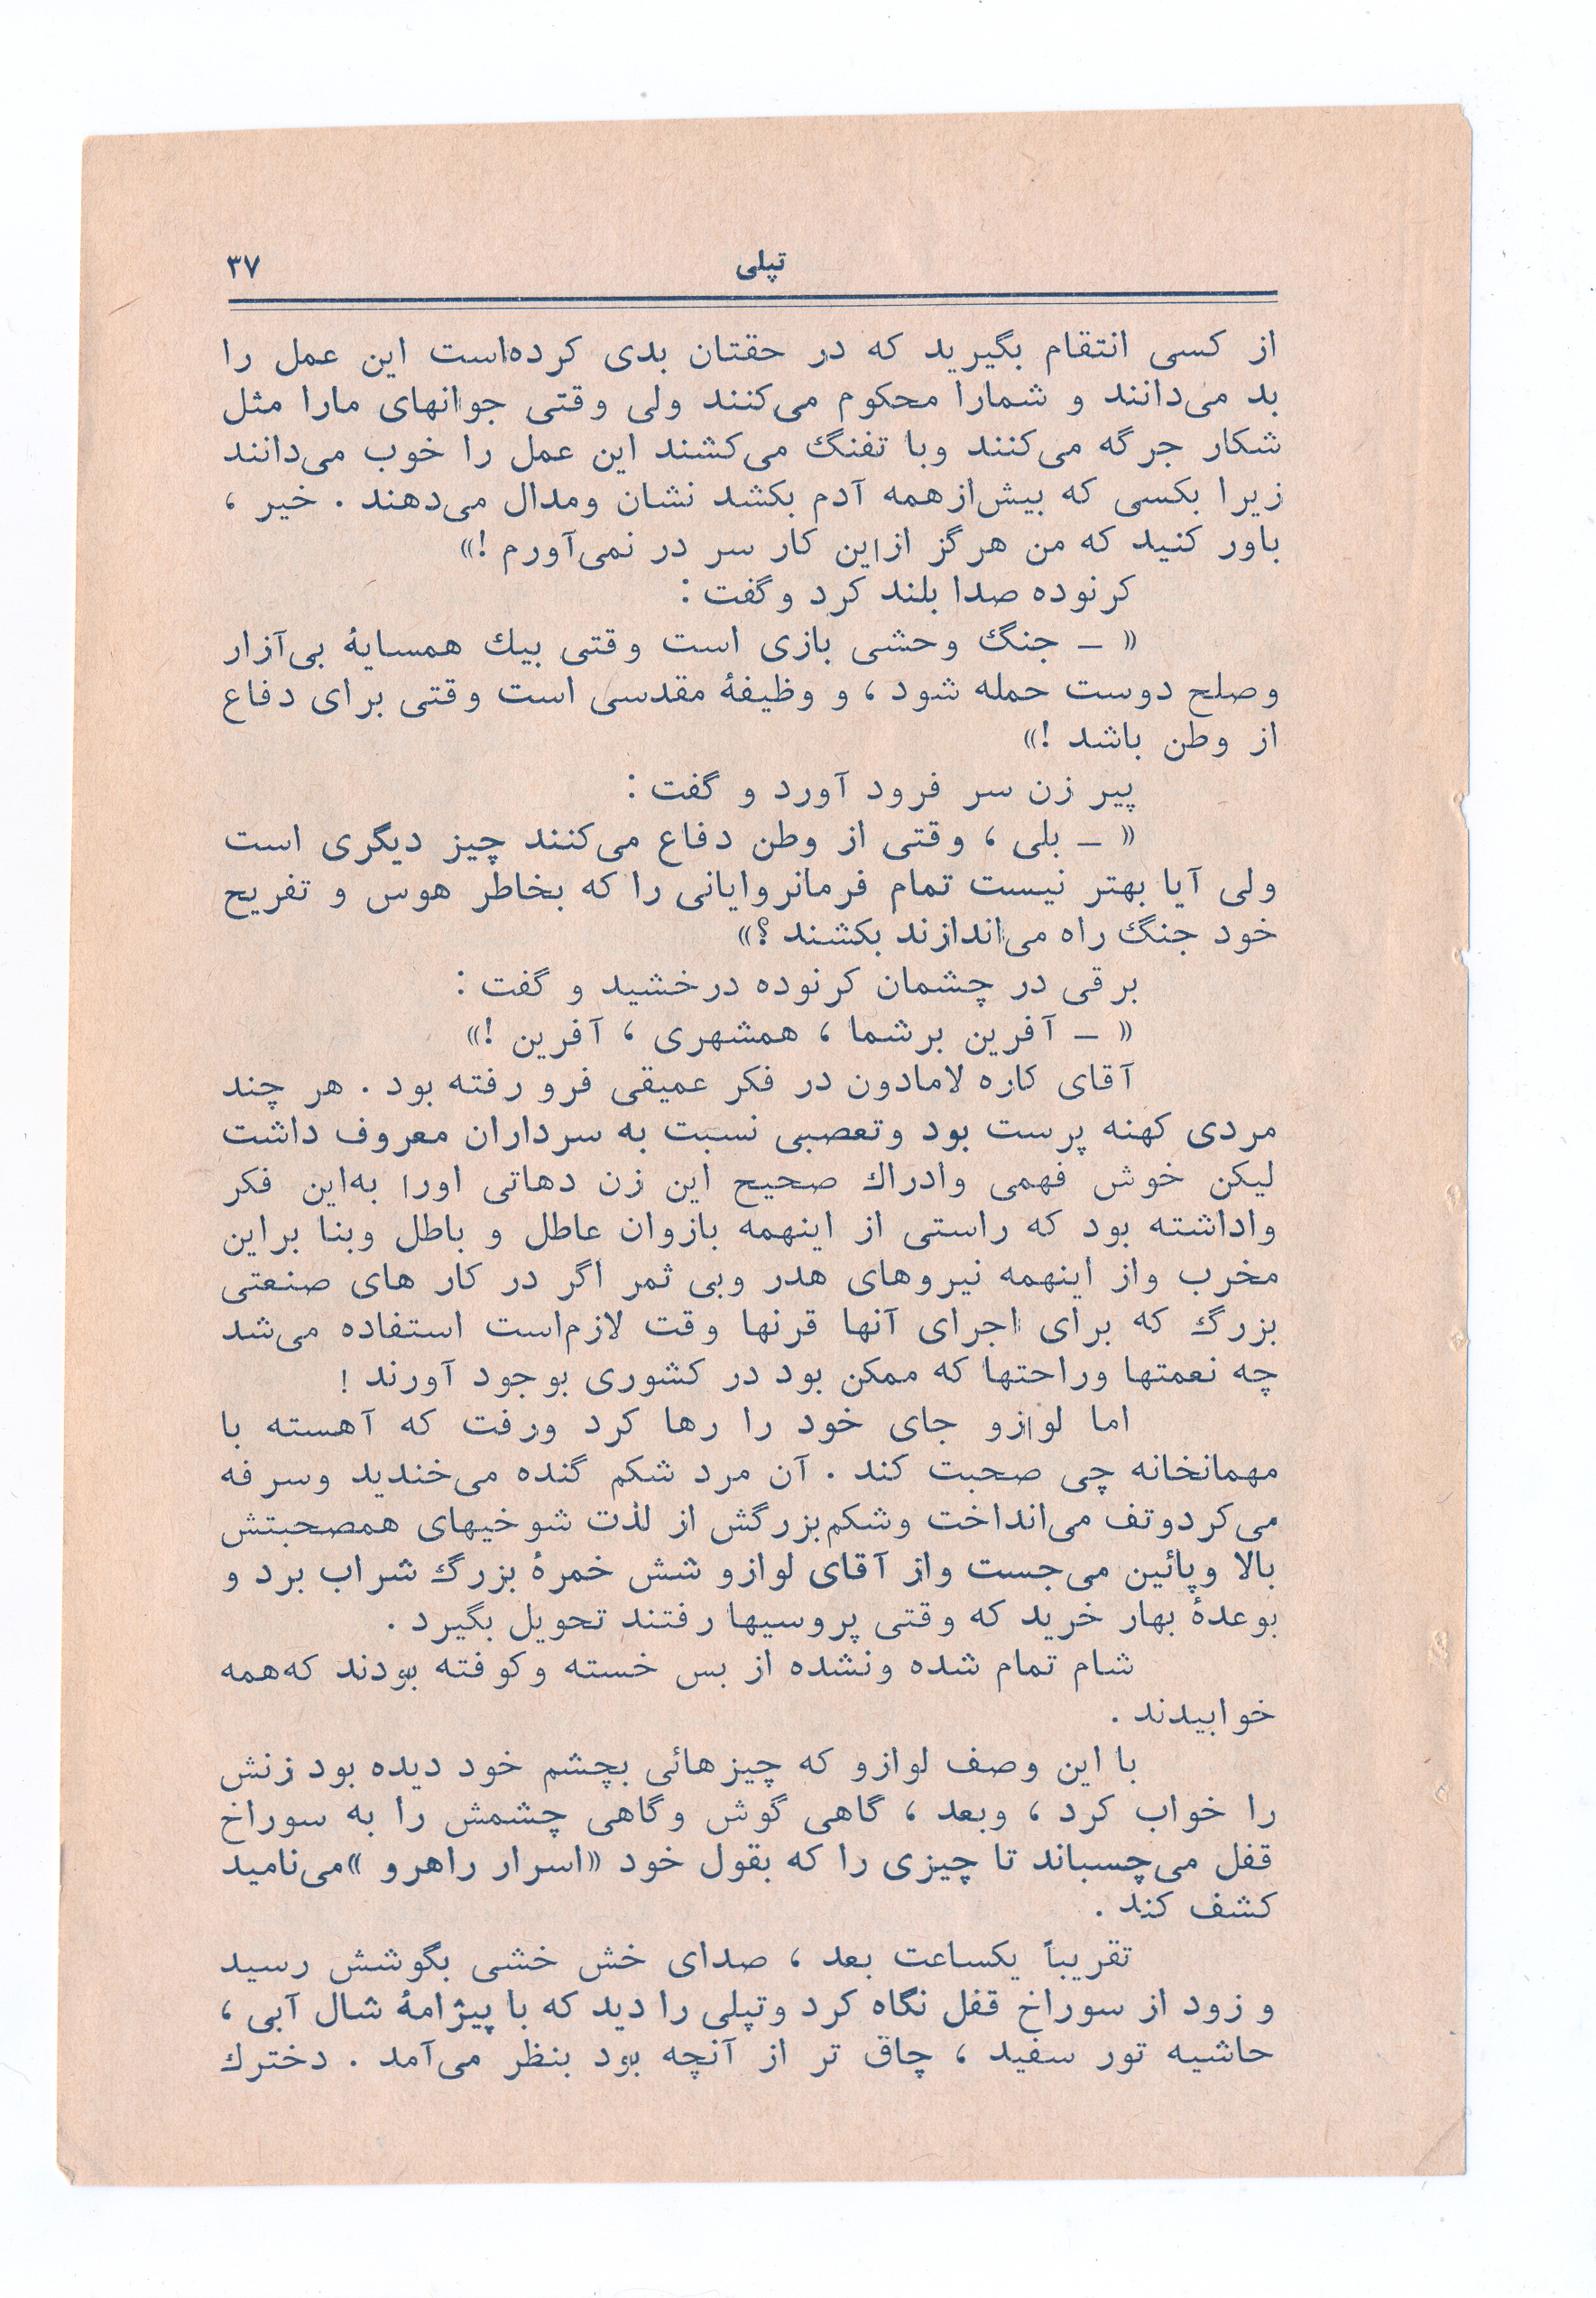 تپلی
۳۷
از کسی انتقام بگیرید که در حقتان بدی کرده‌است این عمل را
بد می‌دانند و شمارا محکوم می‌کنند ولی وقتی جوانهای مارا مثل
شکار جرگه می‌کنند وبا تفنگ می‌کشند این عمل را خوب می‌دانند
زیرا بکسی که بیش‌ازهمه آدم بکشد نشان ومدال می‌دهند . خیر ،
باور کنید که من هرگز ازاین کار سر در نمی‌آورم !»
کرنوده صدا بلند کرد وگفت :
« – جنگ وحشی بازی است وقتی بیك همسایهٔ بی‌آزار
وصلح دوست حمله شود ، و وظیفهٔ مقدسی است وقتی برای دفاع
از وطن باشد !»
پیر زن سر فرود آورد و گفت :
« – بلی ، وقتی از وطن دفاع می‌کنند چیز دیگری است
ولی آیا بهتر نیست تمام فرمانروایانی را که بخاطر هوس و تفریح
خود جنگ راه می‌اندازند بکشند ؟»
برقی در چشمان کرنوده درخشید و گفت :
« – آفرین برشما ، همشهری ، آفرین !»
آقای کاره لامادون در فکر عمیقی فرو رفته بود . هر چند
مردی کهنه پرست بود وتعصبی نسبت به سرداران معروف داشت
لیکن خوش فهمی وادراك صحیح این زن دهاتی اورا به‌این فکر
واداشته بود که راستی از اینهمه بازوان عاطل و باطل وبنا براین
مخرب واز اینهمه نیروهای هدر وبی ثمر اگر در کار های صنعتی
بزرگ که برای اجرای آنها قرنها وقت لازم‌است استفاده می‌شد
چه نعمتها وراحتها که ممکن بود در کشوری بوجود آورند !
اما لوازو جای خود را رها کرد ورفت که آهسته با
مهمانخانه چی صحبت کند . آن مرد شکم گنده می‌خندید وسرفه
می‌کردوتف می‌انداخت وشکم‌بزرگش از لذت شوخیهای همصحبتش
بالا وپائین می‌جست واز آقای لوازو شش خمرهٔ بزرگ شراب برد و
بوعدهٔ بهار خرید که وقتی پروسیها رفتند تحویل بگیرد .
شام تمام شده ونشده از بس خسته وکوفته بودند که‌همه
خوابیدند .
با این وصف لوازو که چیزهائی بچشم خود دیده بود زنش
را خواب کرد ، وبعد ، گاهی گوش وگاهی چشمش را به سوراخ
قفل می‌چسباند تا چیزی را که بقول خود «اسرار راهرو »می‌نامید
کشف کند .
تقریباً یکساعت بعد ، صدای خش خشی بگوشش رسید
و زود از سوراخ قفل نگاه کرد وتپلی را دید که با پیژامهٔ شال آبی ،
حاشیه تور سفید ، چاق تر از آنچه بود بنظر می‌آمد . دخترك